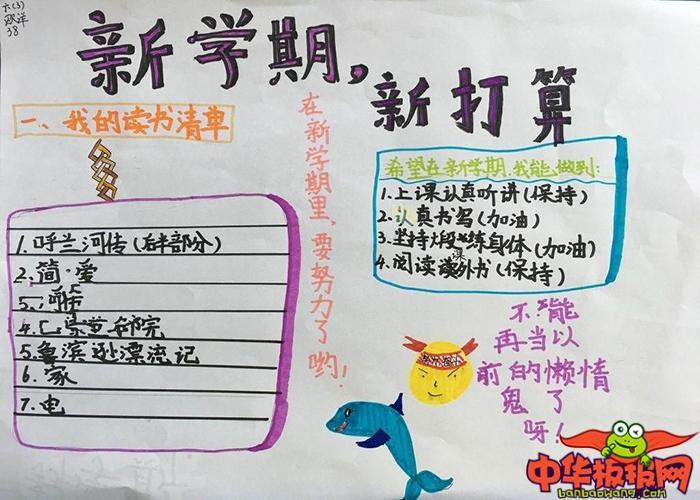 六(3)
38
新学期,
新打算
一、我的读书清单
1.呼兰河传(后半部分)
2.简·爱
4.巴黎圣母院
5.鲁滨逊漂流记
6.家
7.
在新学期里,要努力了哟!
希望在新学期,我能做到:
1.上课认真听讲(保持)
2.认真书写(加油)
3.坚持煅练身体(加油)
4.阅读课外书(保持)
不能
再当以
前的懒惰
鬼了
呀!
中华板报网
banbaowang.com